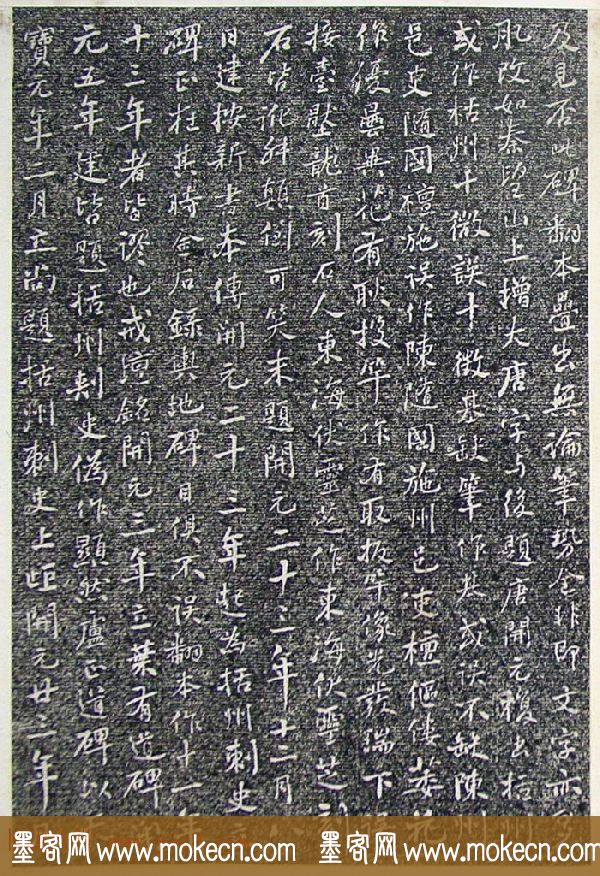 及見否此碑翻本疊出無論筆勢全非即文字亦多
肊改如秦望山上增大唐字与後題唐開元複出括州
或作枯州十微誤十徵基缺筆作基或誤不缺陳州
邑吏隨國檀施誤作陳隨國施州邑吏檀傴僂萎花
作優曇異花有耿投竿作有取扳竿像光發端下
接臺壓龍首刻石人東海伏靈芝作東海伏聖芝刻
石皆訛舛顛倒可笑末題開元二十三年十二月八
日建按新書本傳開元二十三年起為括州刺史
碑正在其時金石録輿地碑目俱不誤翻本作十一年
十三年者皆謬也戒壇銘開元三年立葉有道碑開
元五年建皆題括州刺史偽作顯然盧正道碑以天
寶元年二月立尚題括州刺史上距開元廿三年
墨客网 www.mokecn.com 墨客网 www.mokecn.com